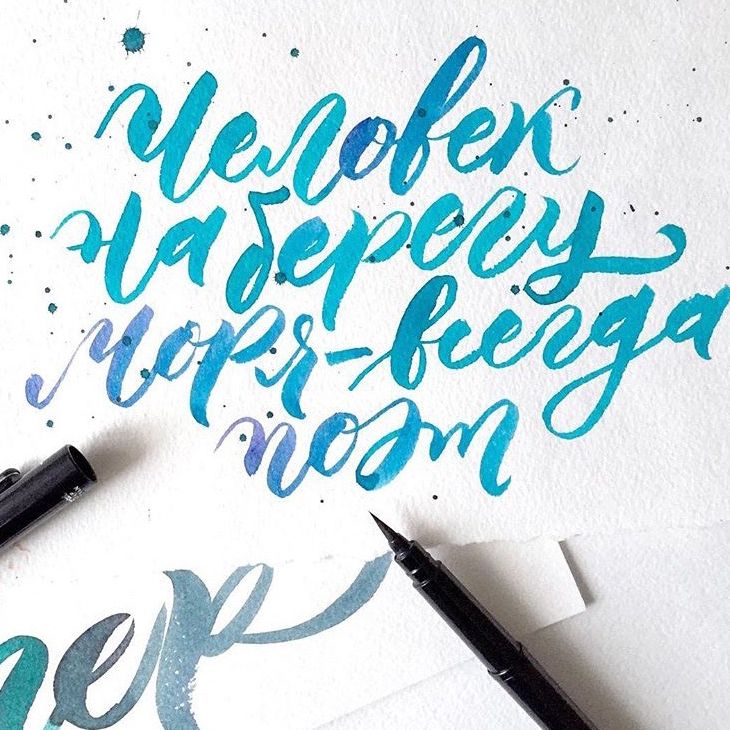 Человек
на берегу
моря - всегда
поэт